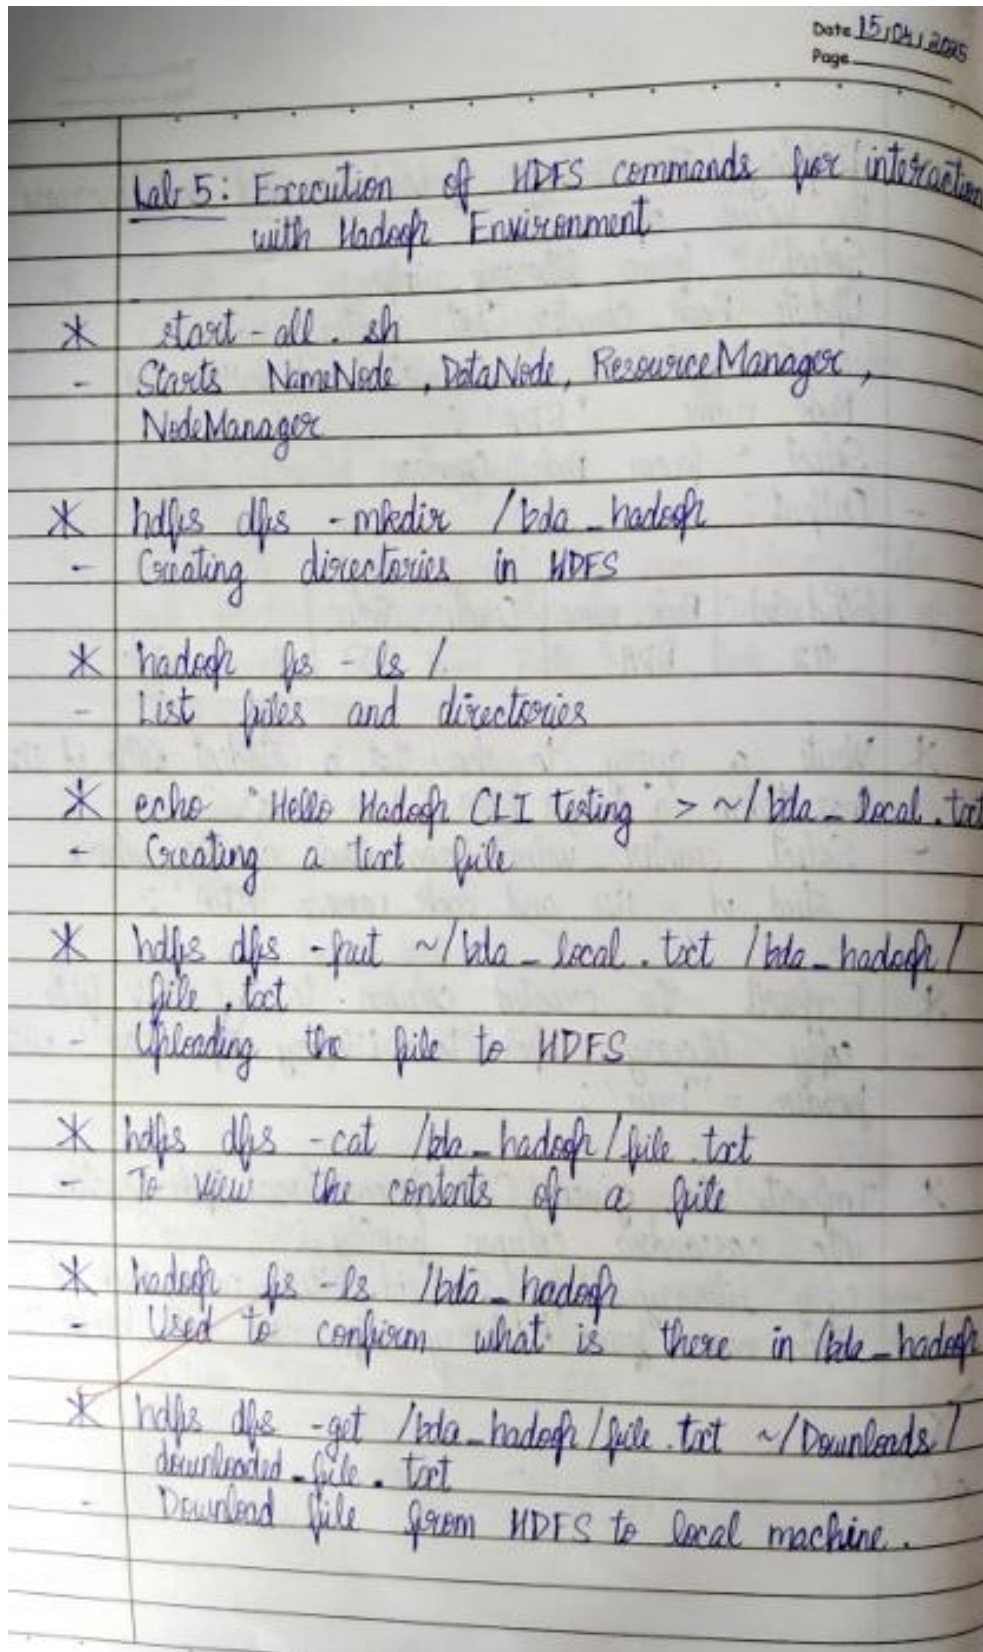 Date 15/04/2025
Page
Lab 5: Execution of HDFS commands for interaction
with Hadoop Environment
* start-all.sh
- Starts NameNode, DataNode, ResourceManager,
NodeManager
* hdfs dfs -mkdir /bda_hadoop
- Creating directories in HDFS
* hadoop fs -ls /
- List files and directories
* echo "Hello Hadoop CLI testing" > ~/bda_local.txt
- Creating a text file
* hdfs dfs -put ~/bda_local.txt /bda_hadoop/
file.txt
- Uploading the file to HDFS
* hdfs dfs -cat /bda_hadoop/file.txt
- To view the contents of a file
* hadoop fs -ls /bda_hadoop
- Used to confirm what is there in /bda_hadoop
* hdfs dfs -get /bda_hadoop/file.txt ~/Downloads/
downloaded_file.txt
- Download file from HDFS to local machine.